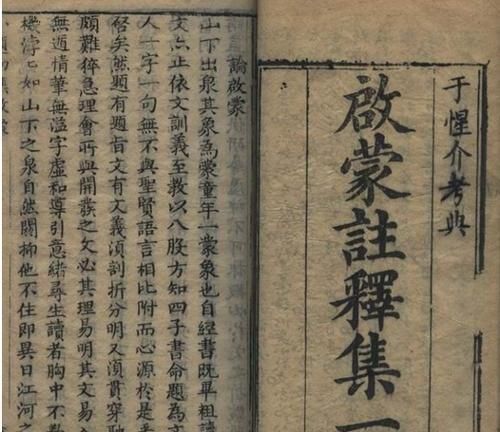 于惺介考典
啟蒙註釋集一
論啟蒙
山下出泉其象為蒙童年一蒙象也自經書既畢粗讀
文六正依文訓義至教以八股方知四子書命題為文
人一字一句無不與聖賢語言相比附而心源於是
啓矣然題有題旨文有文義須剖折分明又須貫穿
頗難猝急理會所與開發之文必其理易明其文易
無遁情華無溢字虛和導引意緒尋生讀者胸中不
機浡如山下之泉自然關抑他不住即異日江河之